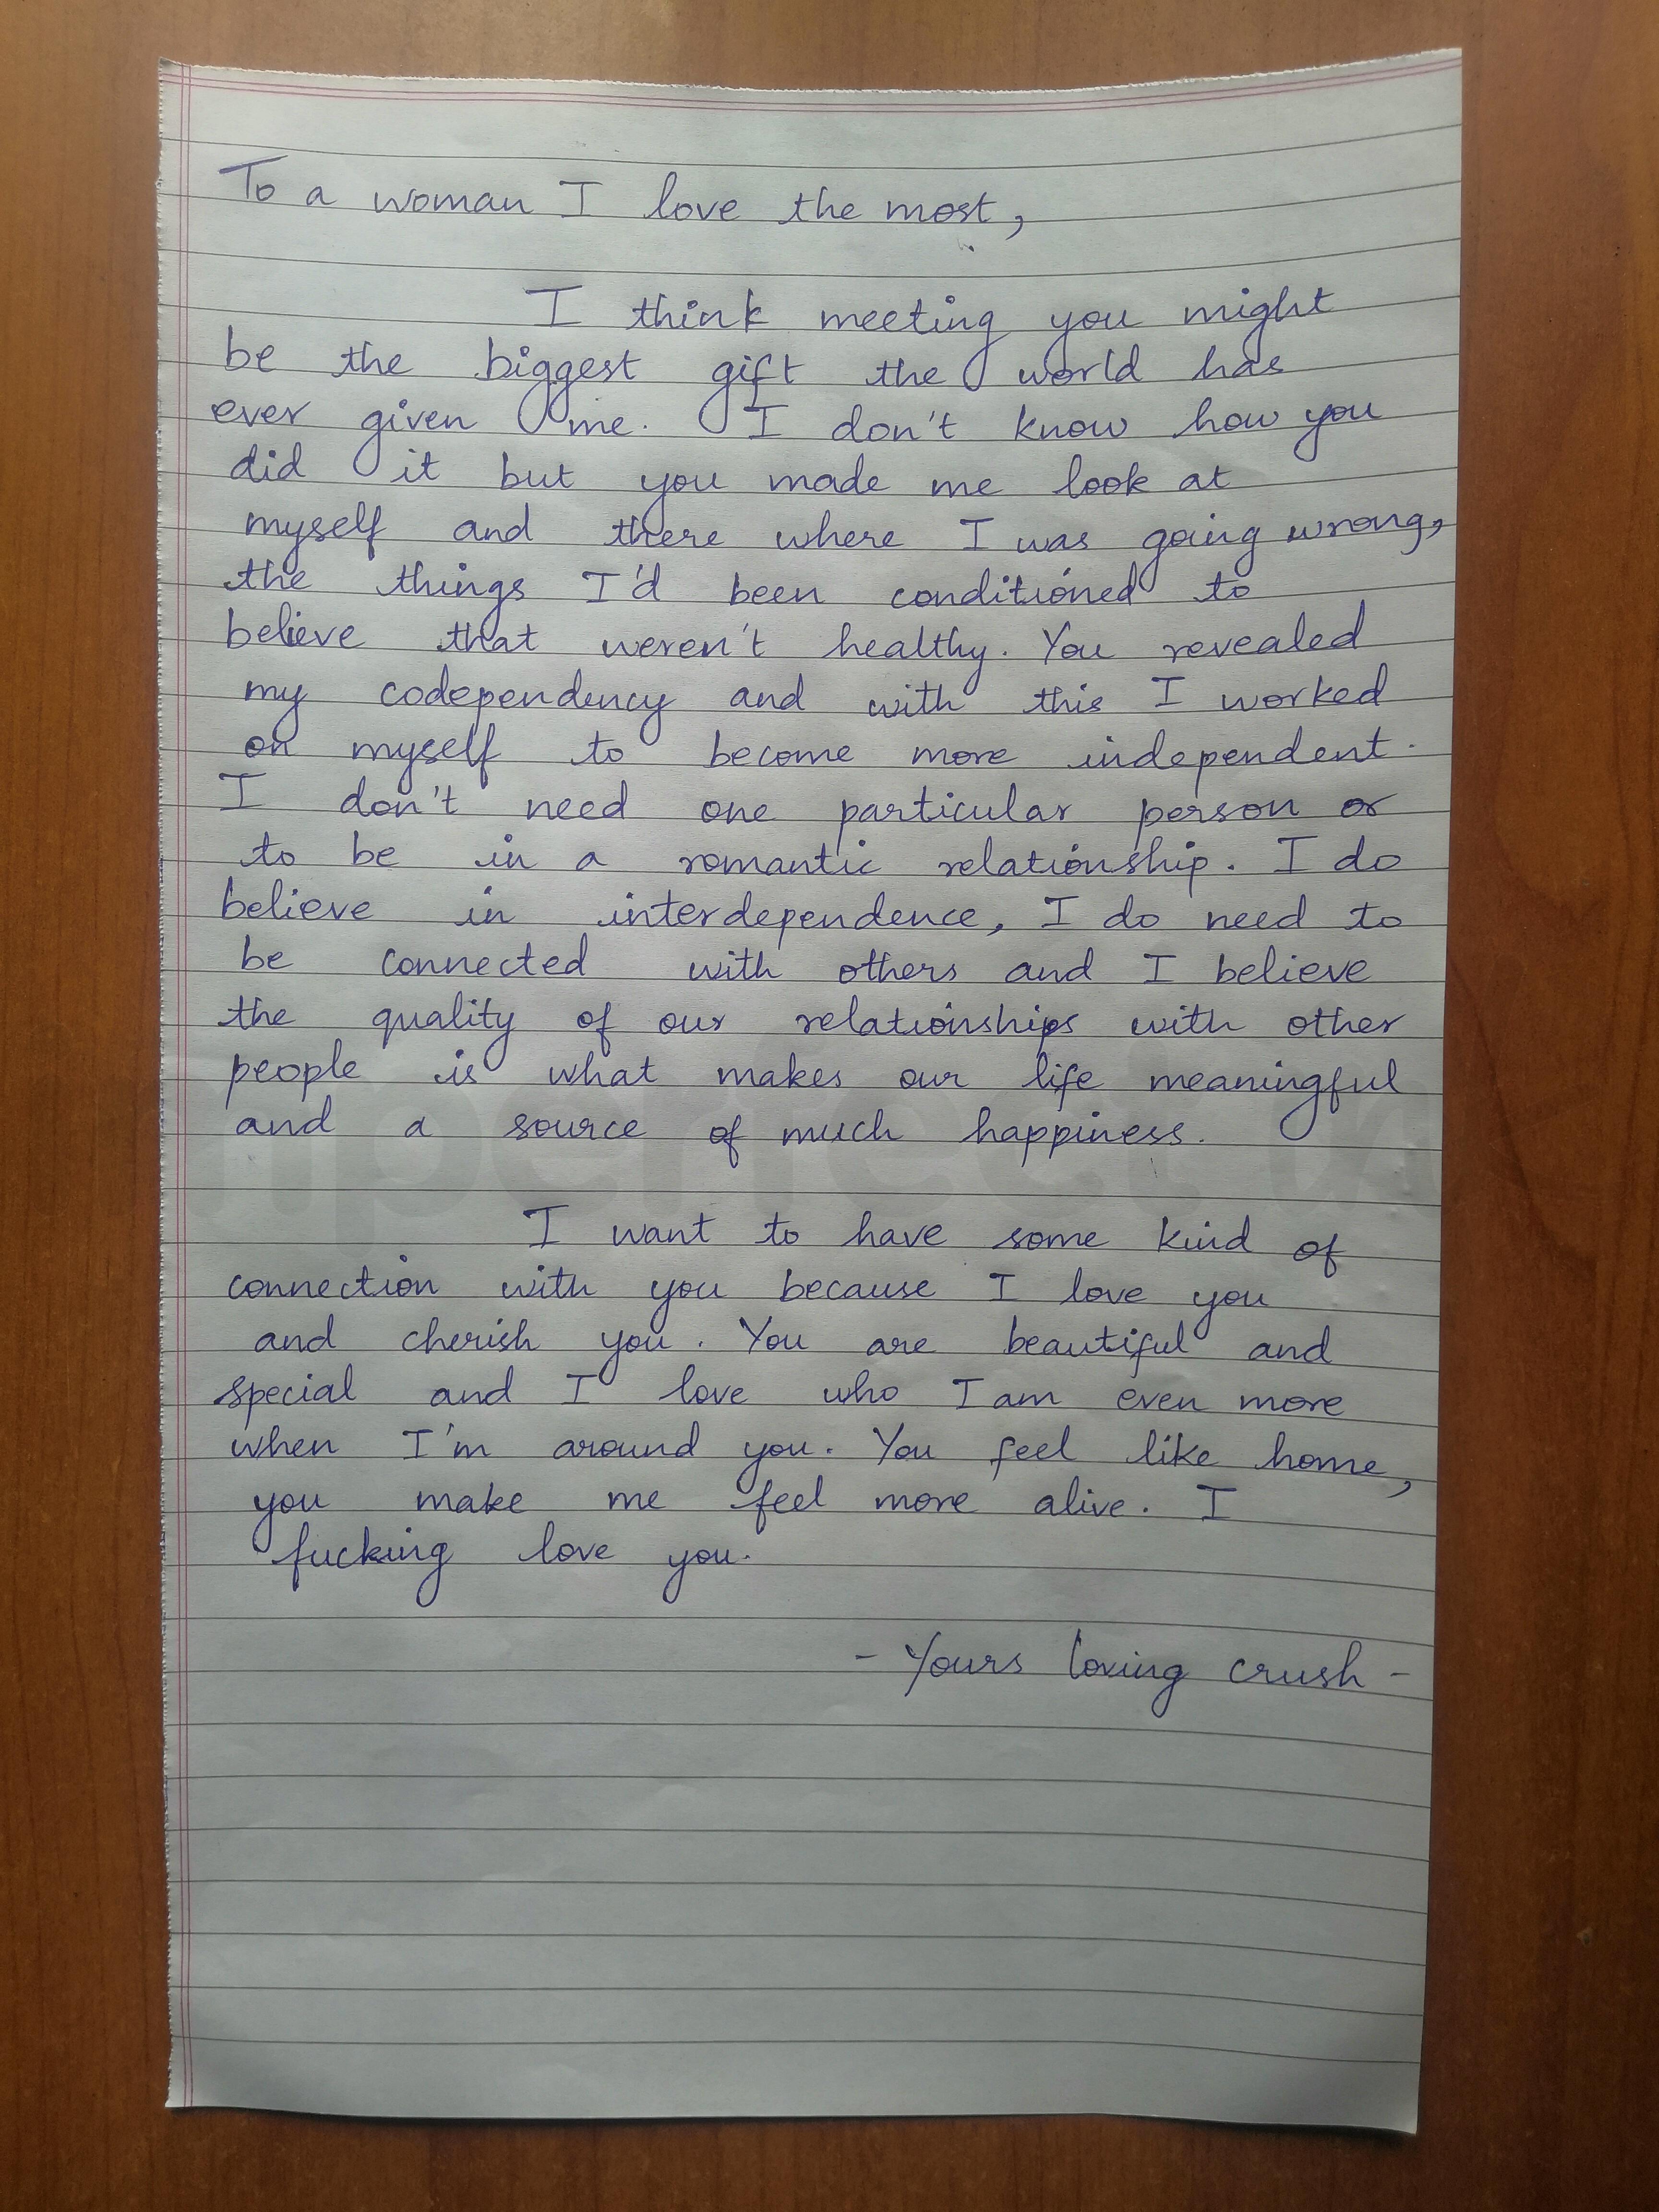 To a woman I love the most,
I think meeting you might
be the biggest gift the world has
ever given me. I don't know how you
did it but you made me look at
myself and there where I was going wrong,
the things I'd been conditioned to
believe that weren't healthy. You revealed
my codependency and with this I worked
on myself to become more independent.
I don't need one particular person or
to be in a romantic relationship. I do
believe in interdependence, I do need to
be connected with others and I believe
the quality of our relationships with other
people is what makes our life meaningful
and a source of much happiness.
I want to have some kind of
connection with you because I love you
and cherish you. You are beautiful and
special and I love who I am even more
when I'm around you. You feel like home,
you make me feel more alive. I
fucking love you.
- Yours loving crush -